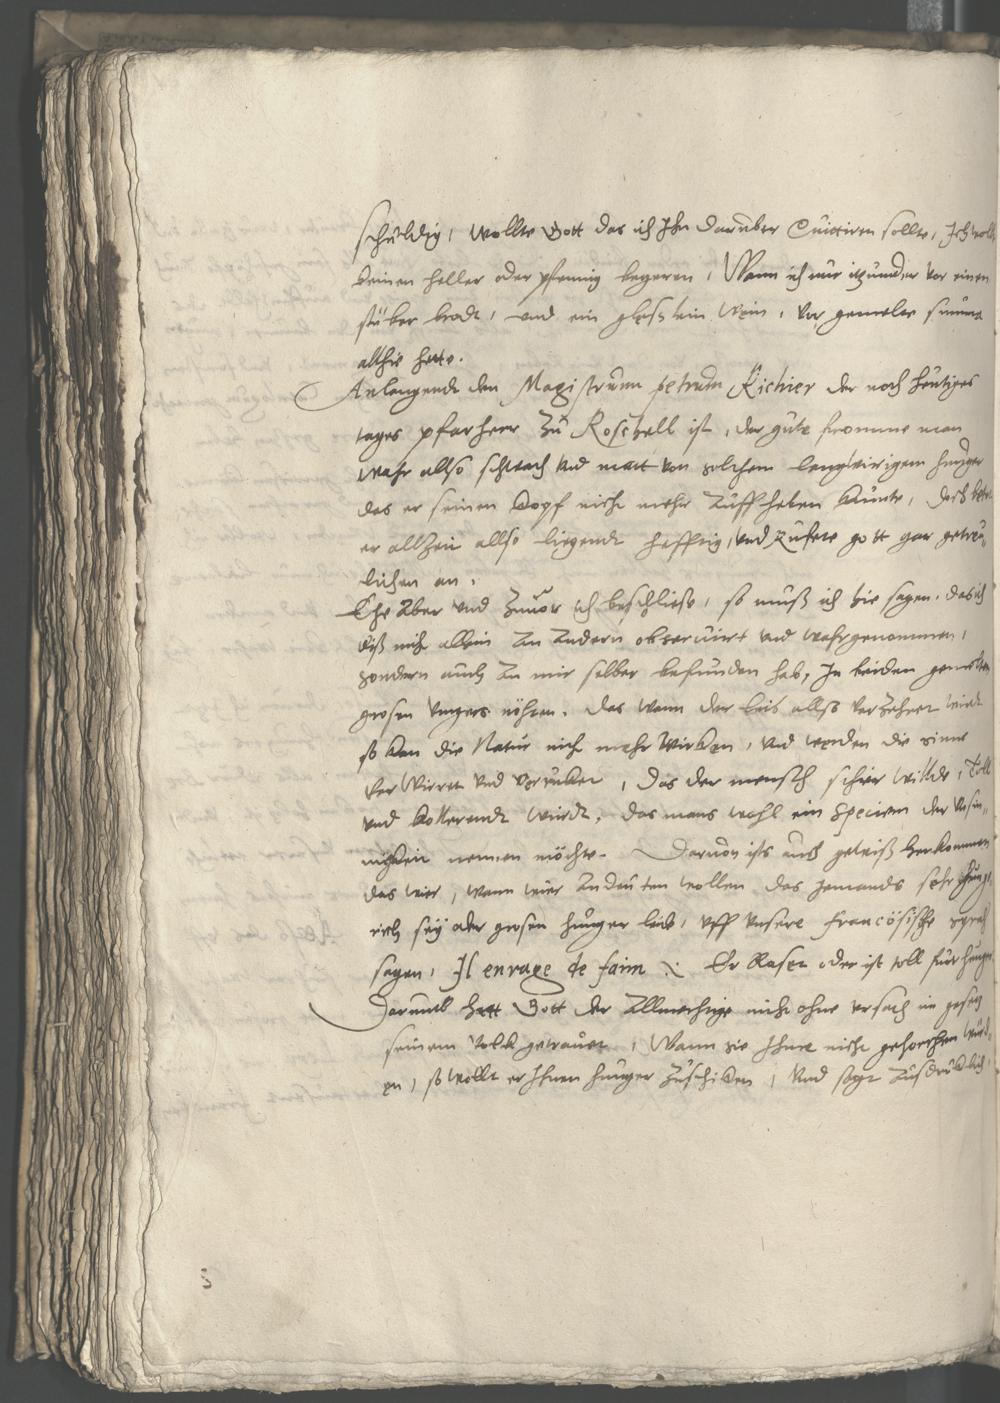 schuldig, wollte Gott das ich Ihn darüber Quittiren sollte, Ich wolt
keinen heller oder pfennig begeren, Wann ich nur itzunder vor einen
stüber brodt, und ein gleslein wein, vor gemelte summa
alhie hette.
Anlangendt den Magistrum petrum Richier der noch heutiges
tages pfarherr zu Roschell ist, der gute fromme man
wahr allso schwach vnd matt von solchem langwirigem hunger
das er seinen kopf nicht mehr auffheben kunte, doch betet
er allzeit allso liegendt hefftig, vnd Rufete gott gar getreu,
lichen an.
Ehe aber vnd zuuor ich beschliesse, so muß ich hie sagen, das ich
diß nicht allein an andern obseruirt vnd wahrgenommen,
sondern auch an mir selber befunden hab, In beiden gemelten
grosen hungers nöhten. das wann der leib allso verzehret wirdt
so kan die Natur nicht mehr wirken, vnd werden die sinne
verwirret vnd verrucket, das der mensch schier willde, toll
vnd kollerendt wirdt, das mans wohl ein Specien der vnsin-
nigkeit nennen möchte. Daruon ists auch gewiß herkommen
das wier, wann wier andeuten wollen das Jemands sehr hung-
rich seÿ oder grosen hunger leide, vff vnsere francösische sprach
sagen, Il enrage de faim : Er Raset oder ist toll für hunger.
Darumb hatt Gott der Allmechtige nicht ohne vrsach im gesetz
seinem volk getrauet, Wann sie Ihme nicht gehorchen würd-
en, so wollt er Ihnen hunger zuschicken, vnd sagt ausdrücklich